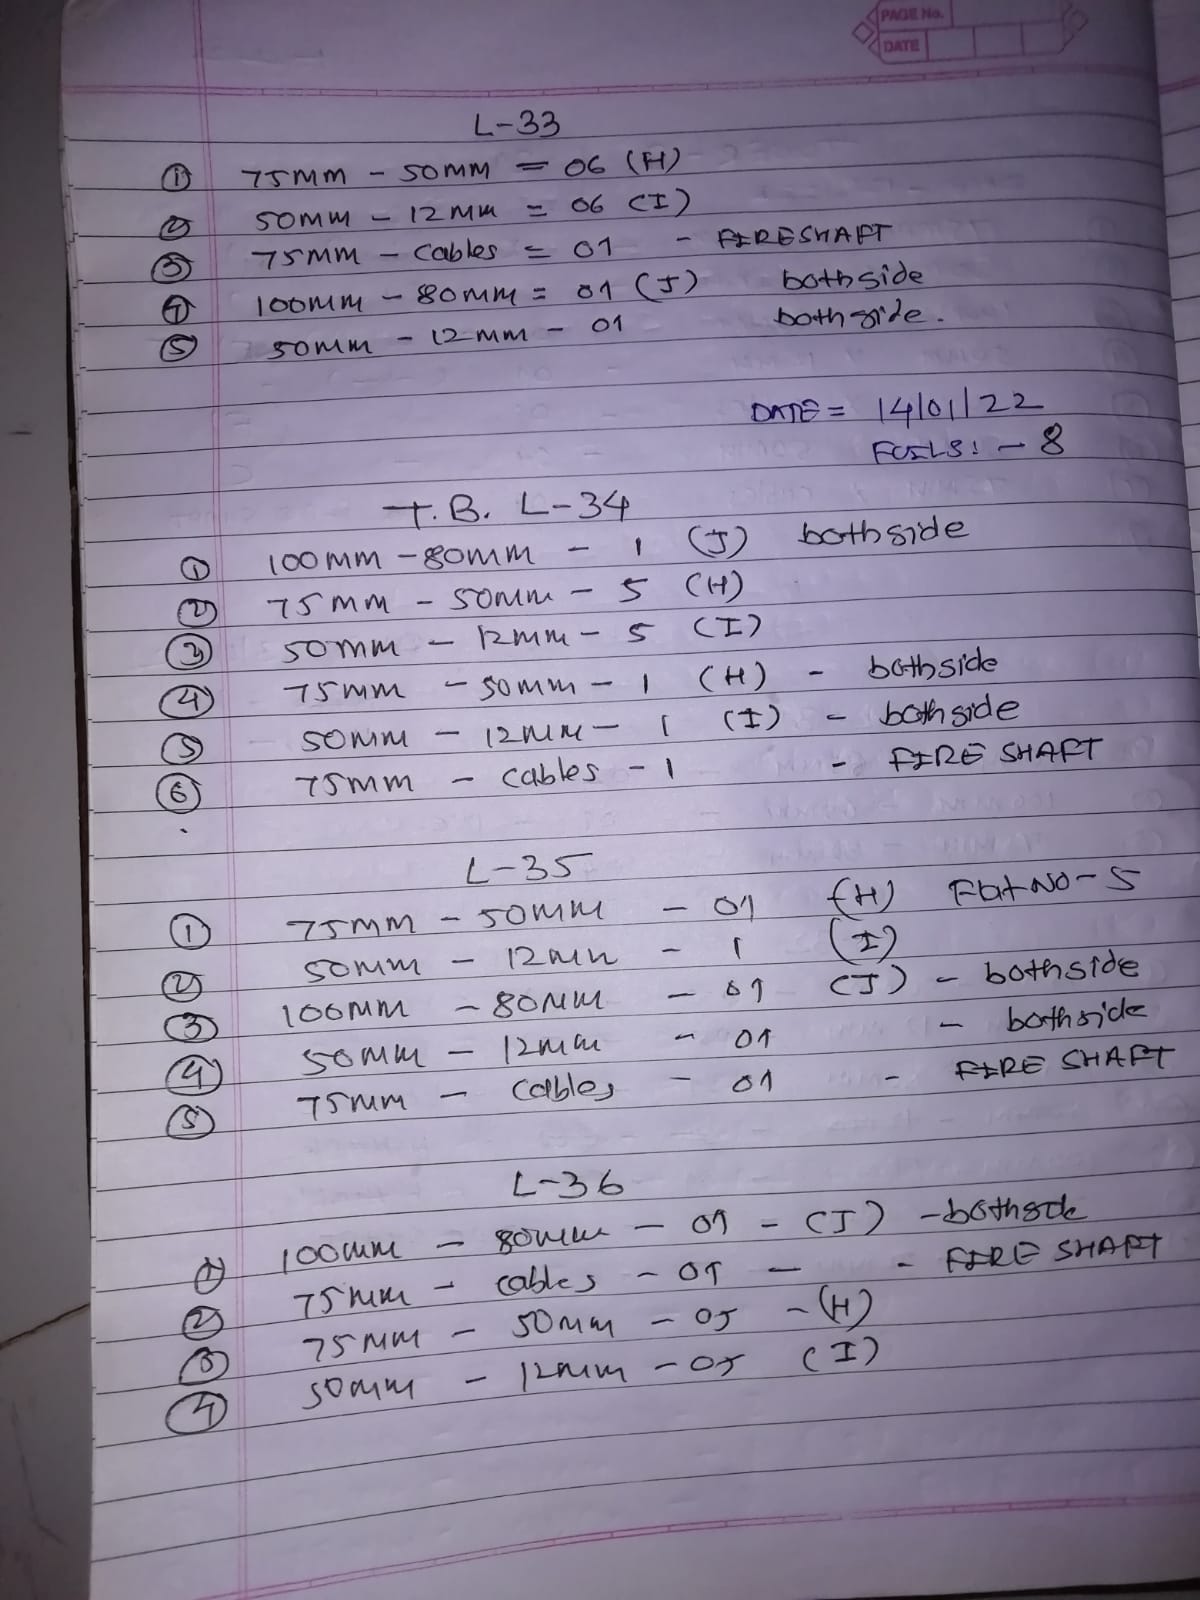 PAGE No.
DATE
L-33
① 75MM - 50MM = 06 (H)
② 50MM - 12MM = 06 (I)
③ 75MM - cables = 01 - FIRESHAFT
④ 100MM - 80MM = 01 (J) bothside
⑤ 50MM - 12MM - 01 bothside.
DATE = 14/01/22
FOILS: - 8
T.B. L-34
① 100MM - 80MM - 1 (J) bothside
② 75MM - 50MM - 5 (H)
③ 50MM - 12MM - 5 (I)
④ 75MM - 50MM - 1 (H) - bothside
⑤ 50MM - 12MM - 1 (I) - bothside
⑥ 75MM - cables - 1 - FIRE SHAFT
L-35
① 75MM - 50MM - 01 (H) Flat NO - 5
② 50MM - 12MM - 1 (I)
③ 100MM - 80MM - 01 (J) - bothside
④ 50MM - 12MM - 01 - bothside
⑤ 75MM - cables - 01 - FIRE SHAFT
L-36
① 100MM - 80MM - 01 - (J) - bothside
② 75MM - cables - 01 - - FIRE SHAFT
③ 75MM - 50MM - 05 - (H)
④ 50MM - 12MM - 05 (I)